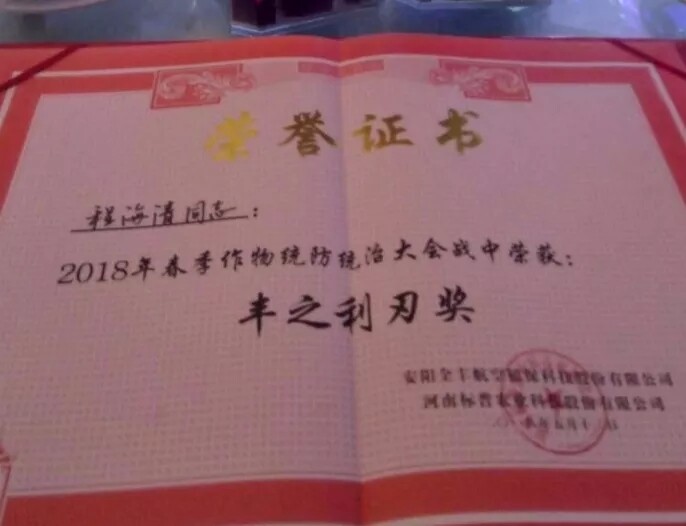 荣誉证书
程海清同志：
2018年春季作物统防统治大会战中荣获：
丰之利刃奖
安阳全丰航空植保科技股份有限公司
河南标普农业科技股份有限公司